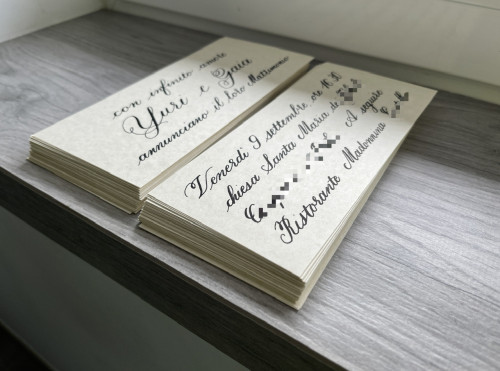 con infinito amore
Yuri e Gaia
annunciano il loro Matrimonio
Venerdì 9 settembre, ore 11.30
chiesa Santa Maria de
A seguire
Ristorante Madonnina